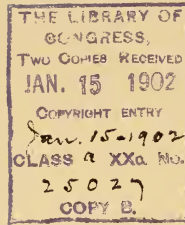 THE LIBRARY OF
CONGRESS,
TWO COPIES RECEIVED
JAN. 15 1902
COPYRIGHT ENTRY
Jan. 15-1902
CLASS a XXa No.
25027
COPY B.